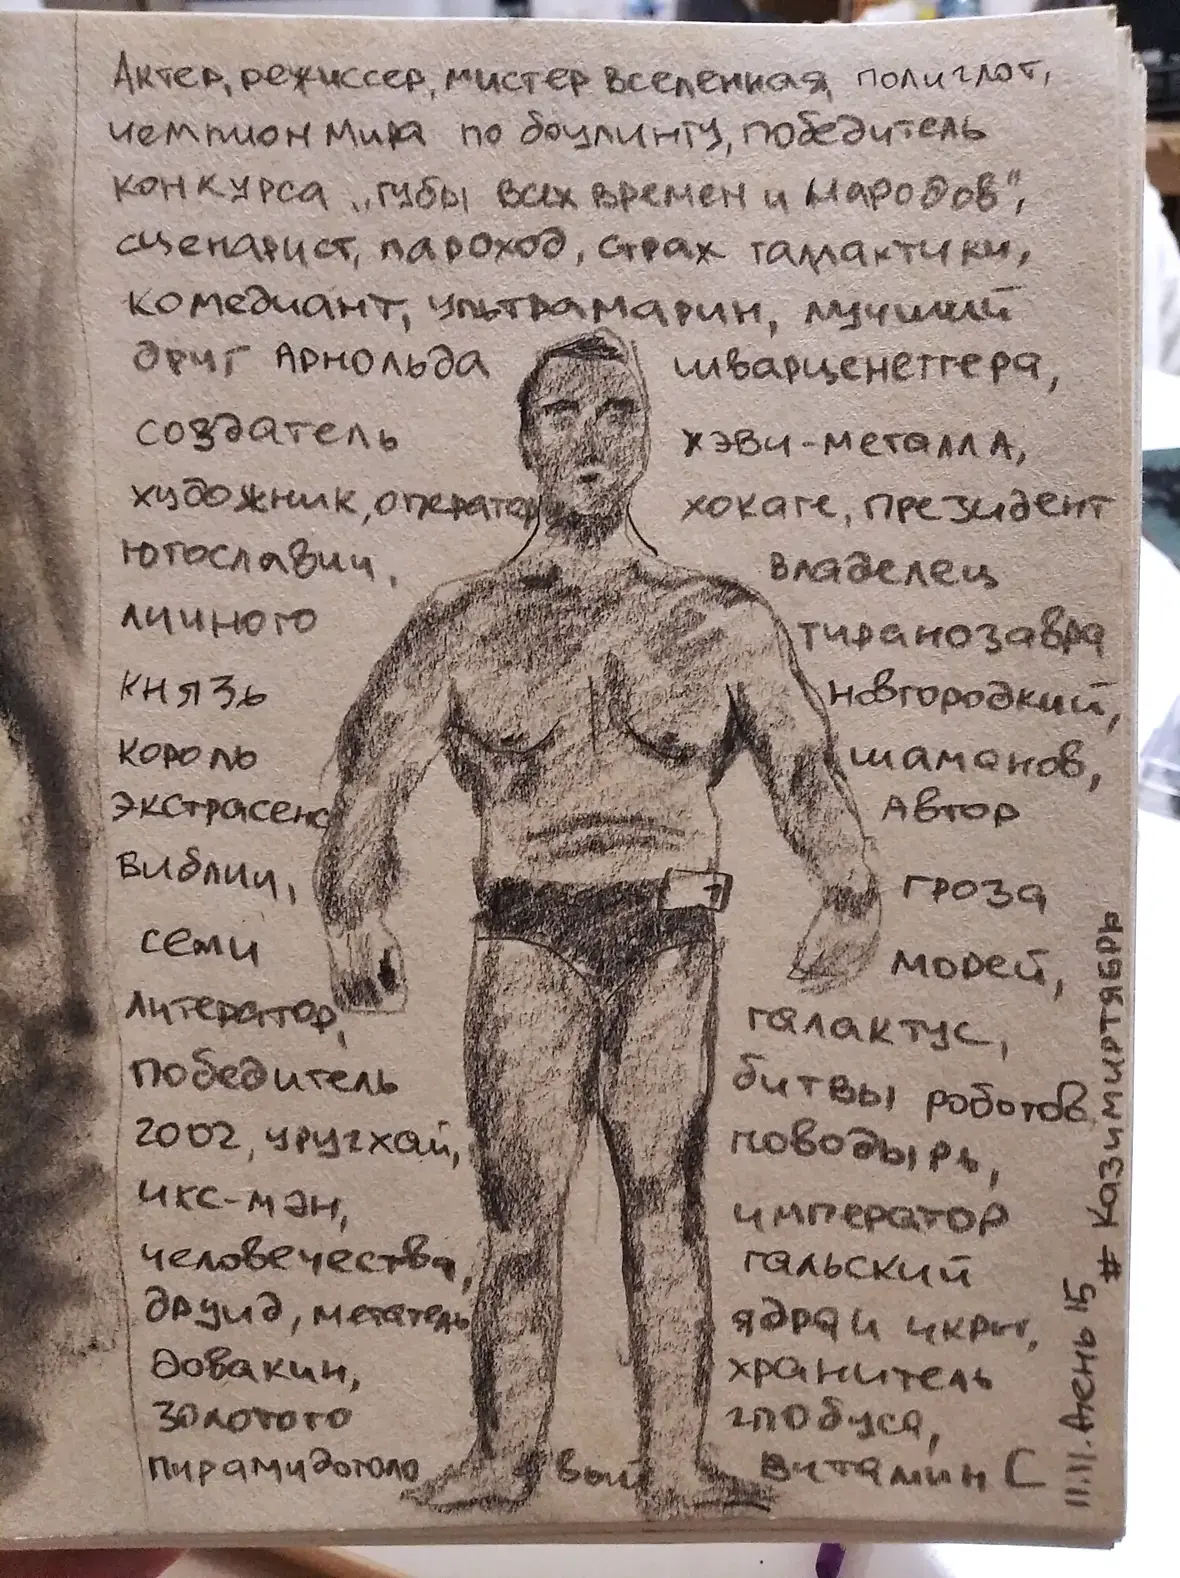 Актер, режиссер, мистер вселенная, полиглот,
чемпион мира по боулингу, победитель
конкурса „губы всех времен и народов",
сценарист, пароход, страх галлактики,
комедиант, ультрамарин, лучший
друг Арнольда Шварценеггера,
создатель хэви-металла,
художник, оператор хокаге, президент
Югославии, владелец
личного тиранозавра
князь новгородкий,
король шаманов,
экстрасенс Автор
Библии, гроза
семи морей,
литератор, галактус,
победитель битвы роботов
2002, уругхай, поводырь,
икс-мэн, император
человечества, гальский
друид, метатель ядра и икры,
довакин, хранитель
золотого глобуса,
пирамидоголовый витамин С
11.11. День 15 #Казимиртябрь